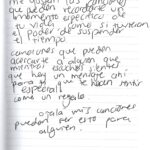 me gustan las canciones
que pueden recordarte un
momento específico de
tu vida, como si tuvieran
el poder de suspender
el tiempo
canciones que pueden
acercarte a alguien que
mientras escuchas sientes
que hay un mensaje ahí
para ti que te hacen sentir
especial
como un regalo
ojalá mis canciones
puedan ser esto para
alguien.